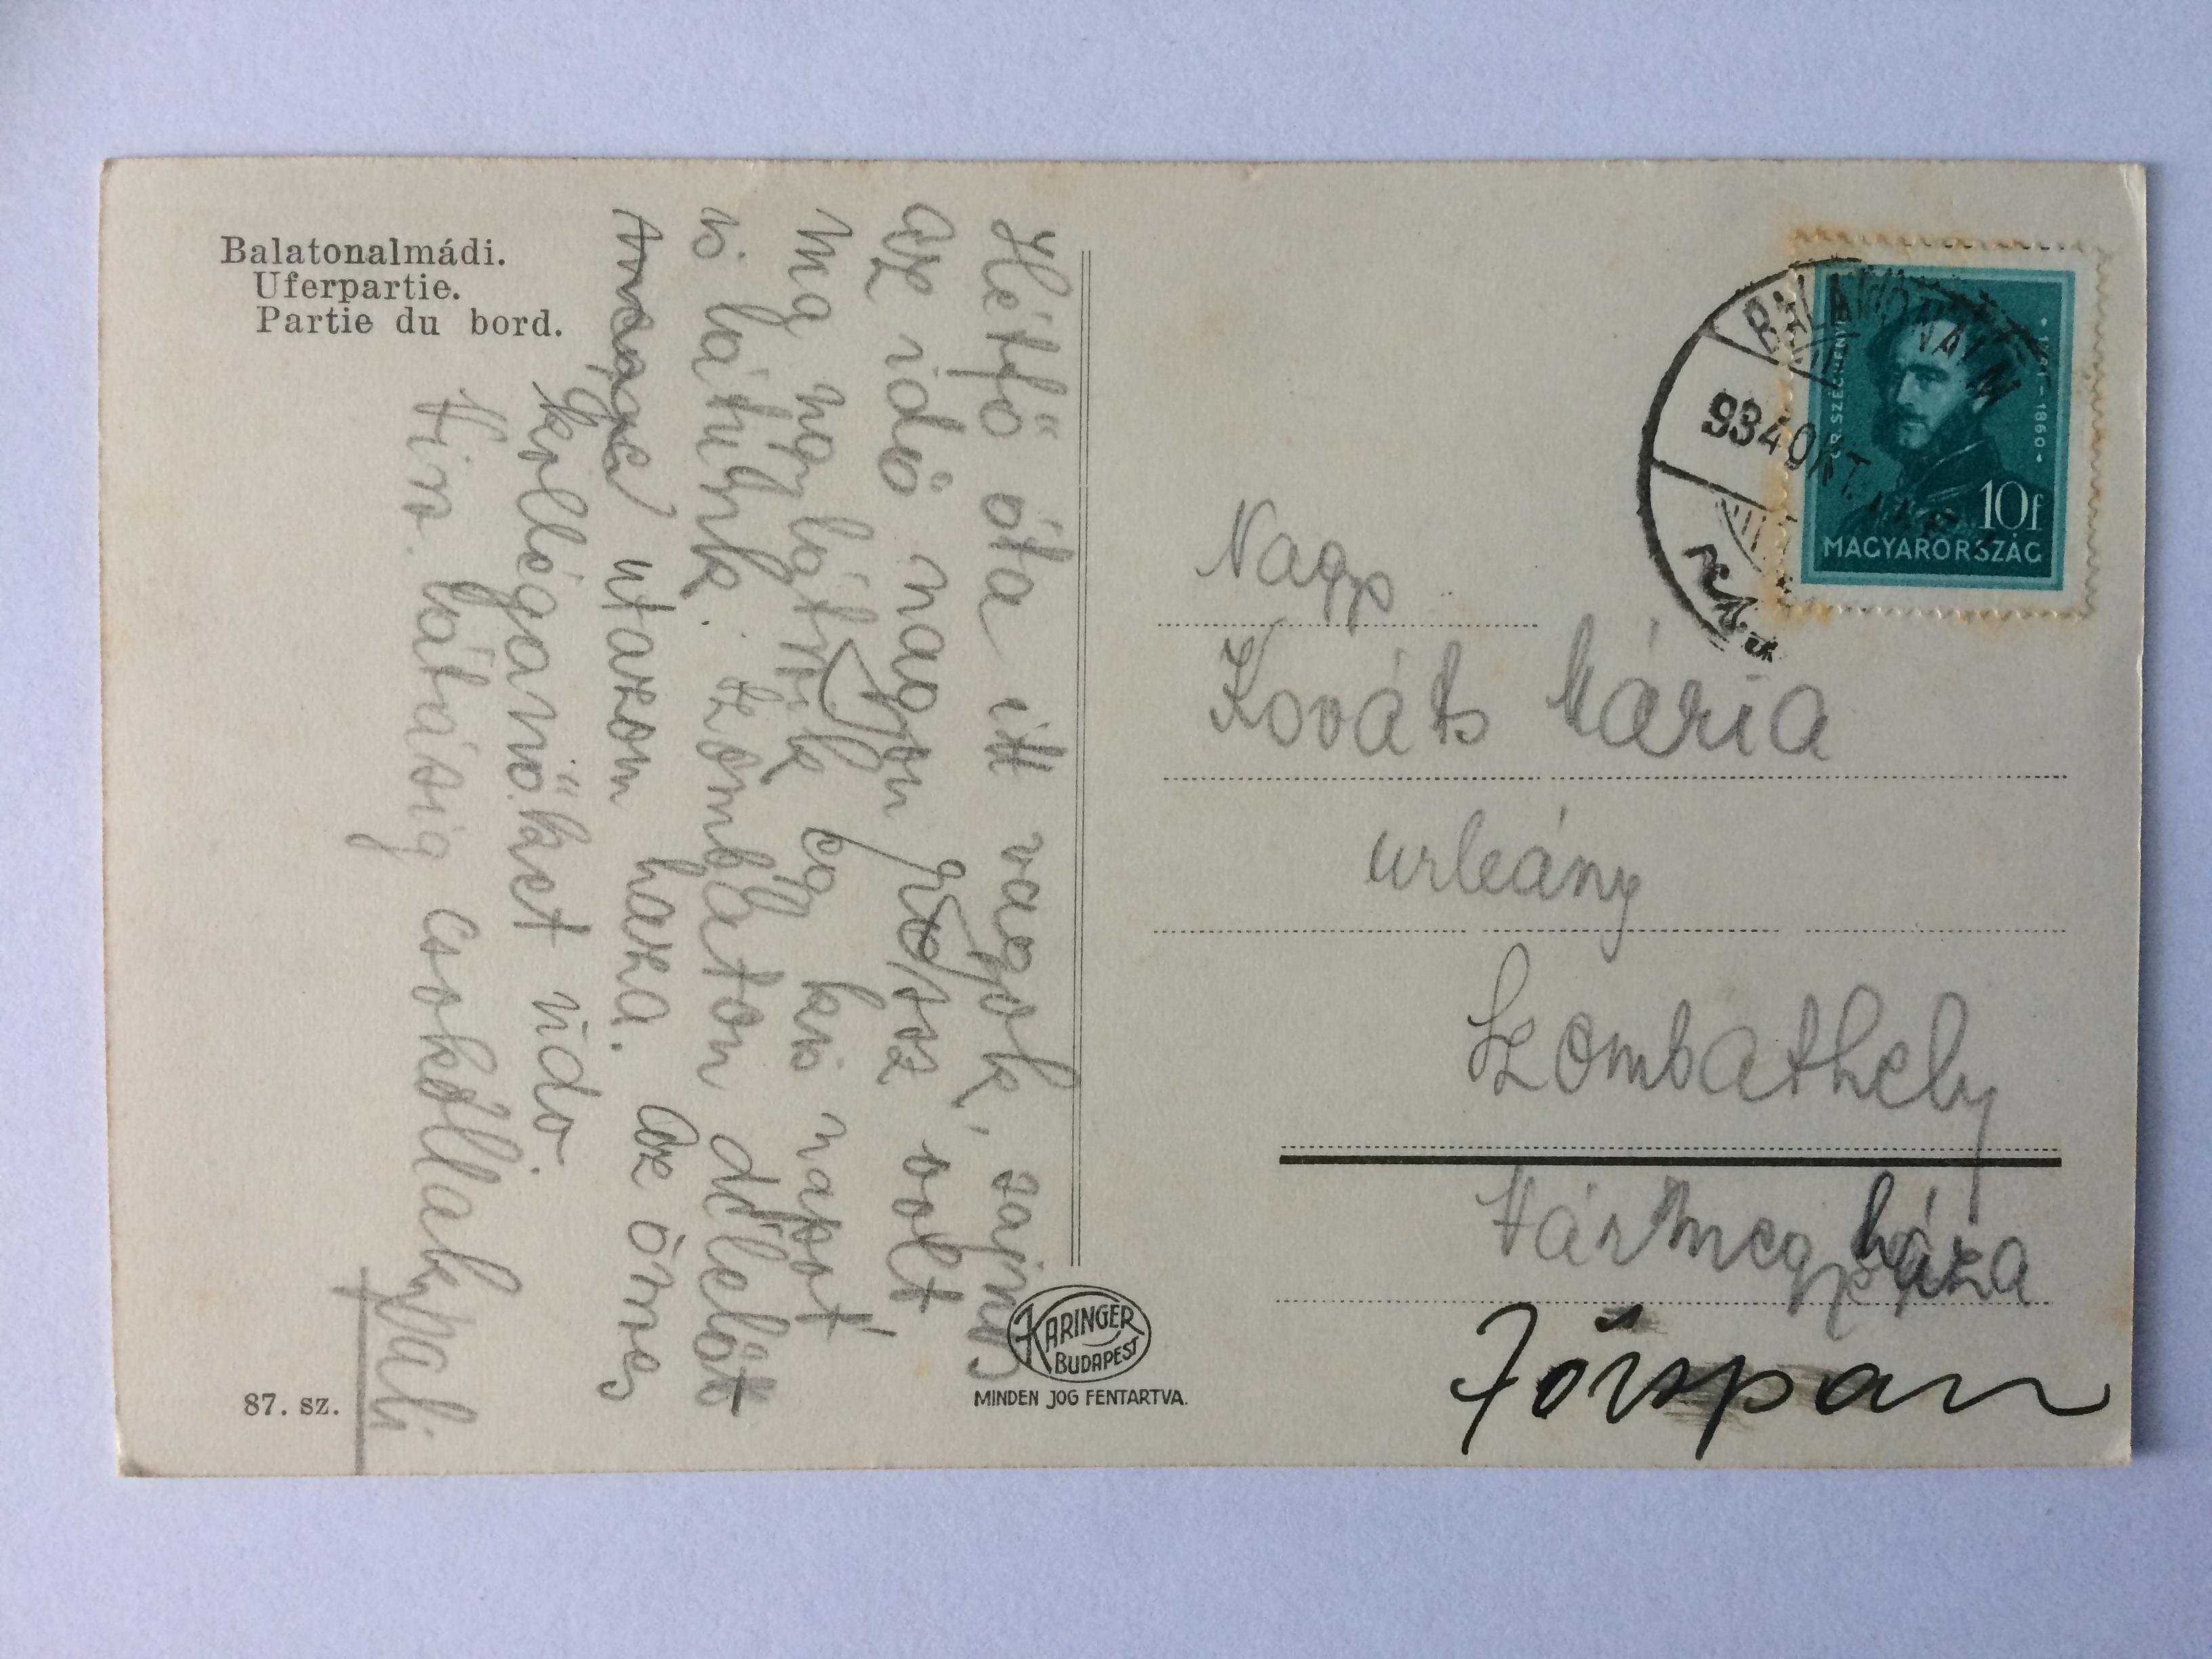 Balatonalmádi.
Uferpartie.
Partie du bord.
Hétfő óta itt vagyok, sajnos
az idő nagyon rossz volt
egy kis napot
is látunk. Szombaton délelőtt
utazom haza. Az összes
kollégánőket üdv.
Visz. látásig csokollak
Pali
87. sz.
KARINGER
BUDAPEST
MINDEN JOG FENTARTVA.
BALATONALM
934 OKT.
GR. SZÉCHENYI
1791-1860
10f
MAGYARORSZÁG
Nagy
Kováts Mária
urleány
Szombathely
Vármegyeháza
Főispán